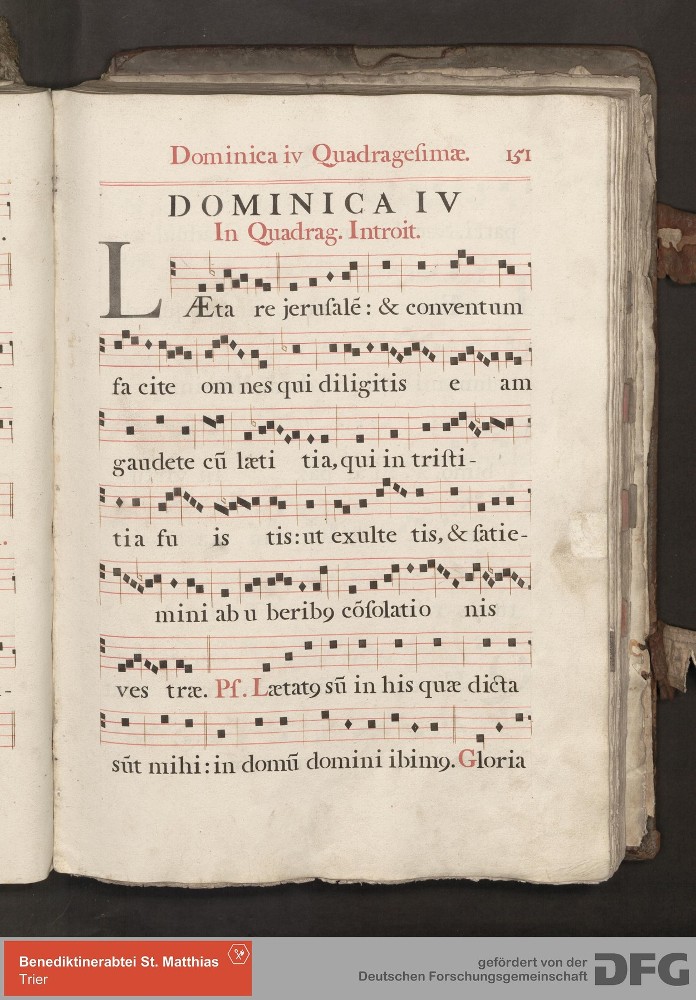 Dominica iv Quadrageſimæ. 151
DOMINICA IV
In Quadrag. Introit.
LÆta re jeruſalē : & conventum
fa cite om nes qui diligitis e am
gaudete cū læti tia, qui in triſti-
tia fu is tis: ut exulte tis, & ſatie-
mini ab u beribꝰ cōſolatio nis
ves træ. Pſ. Lætatꝰ sū in his quæ dicta
sūt mihi: in domū domini ibimꝰ. Gloria
Benediktinerabtei St. Matthias
Trier
gefördert von der
Deutschen Forschungsgemeinschaft
DFG